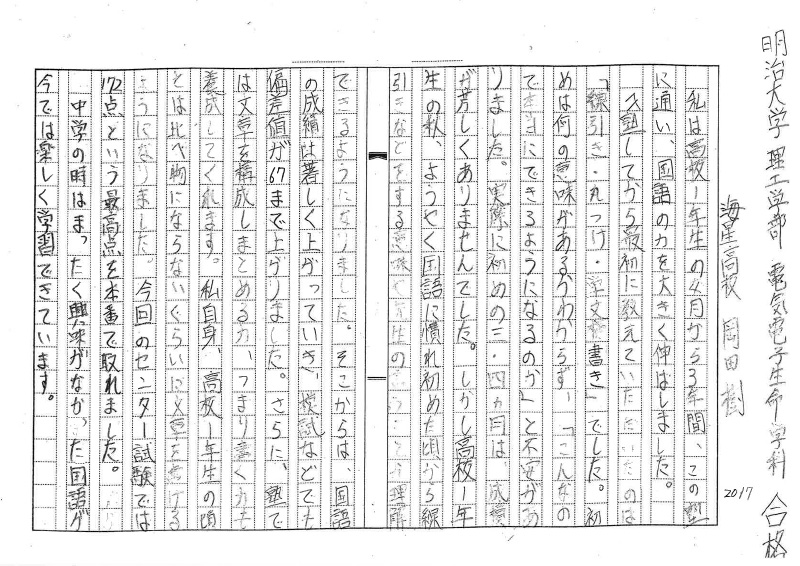 明治大学 理工学部 電気電子生命学科 合格
海星高校 岡田 樹
2017
私は高校1年生の4月から3年間、この塾
に通い、国語の力を大きく伸ばしました。
入塾してから最初に教えていただいたのは
「線引き・丸つけ・ 書き」でした。初
めは何の意味があるかわからず、「こんなの
で本当にできるようになるのか」と不安があ
りました。実際に初めの三・四カ月は 成績
が芳しくありませんでした。しかし高校1年
生の秋、ようやく国語に慣れ初めた頃から線
引きなどをする意味や先生の 理解
できるようになりました。そこからは、国語
の成績は著しく上がっていき、模試などでも
偏差値が67まで上がりました。さらに、塾で
は文章を構成しまとめる力、つまり書く力も
養成してくれます。私自身、高校1年生の頃
とは比べ物にならないぐらいに文章を書ける
ようになりました。今回のセンター試験では
172点という最高点を本番で取れました。
中学の時はまったく興味がなかった国語が
今では楽しく学習できています。